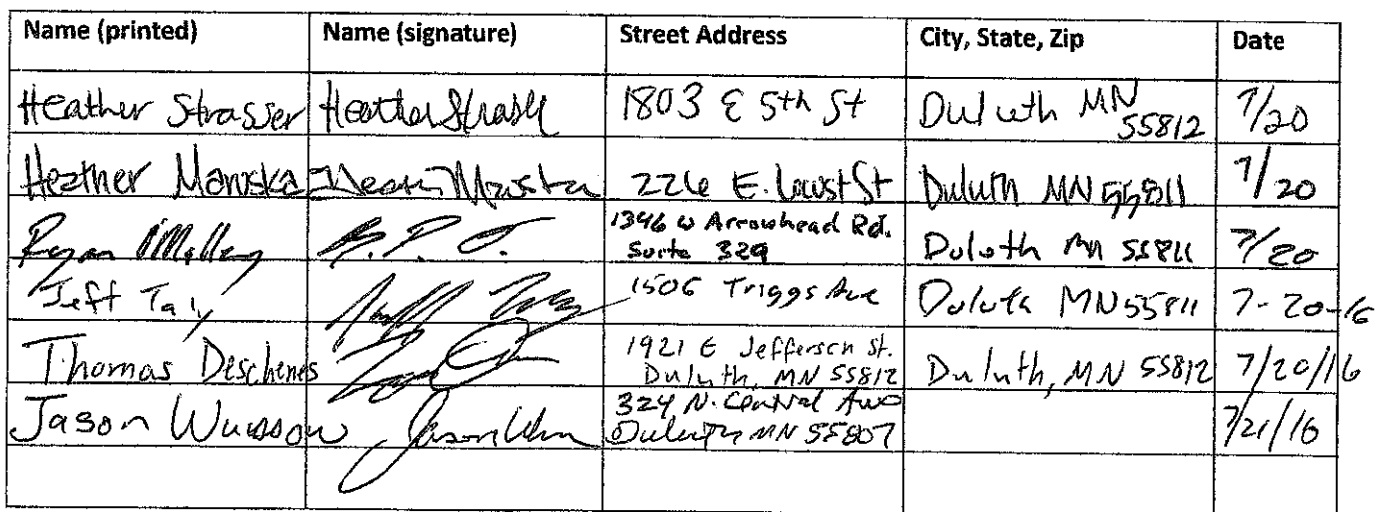 Name (printed) Name (signature) Street Address City, State, Zip Date
Heather Strasser Heather Strasser 1803 E 5th St Duluth MN 55812 7/20
Heather 226 E. Locust St Duluth MN 55811 7/20
Ryan O'Malley 1346 W Arrowhead Rd. Suite 329 Duluth MN 55811 7/20
Jeff 1506 Triggs Ave Duluth MN 55811 7-20-16
Thomas Deschenes 1921 E Jefferson St. Duluth, MN 55812 Duluth, MN 55812 7/20/16
Jason Wussow Jason 324 N. Central Ave Duluth MN 55807 7/21/16